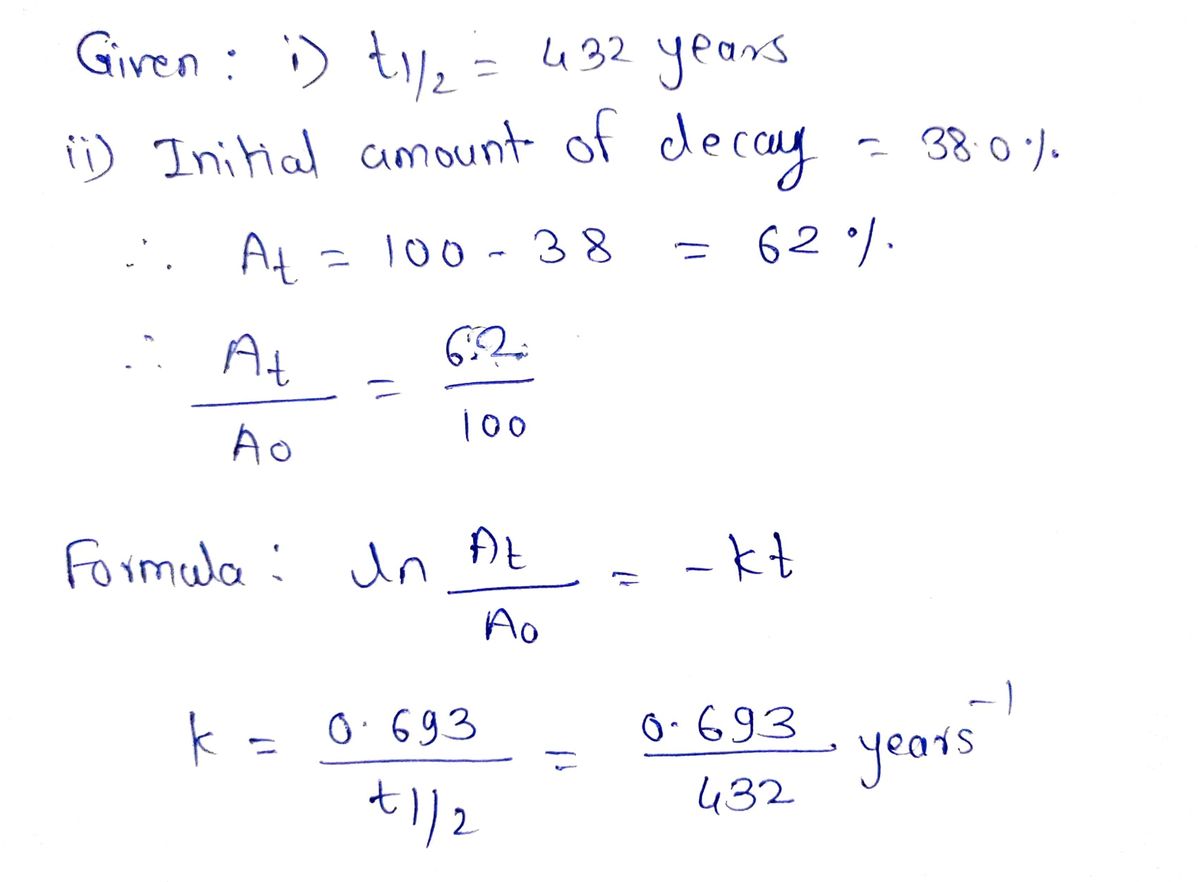 Given : i) t1/2 = 432 years
ii) Initial amount of decay = 38.0 %.
∴ At = 100 - 38 = 62 %.
∴ At / A0 = 62 / 100
Formula : ln At / A0 = - kt
k = 0.693 / t1/2 = 0.693 / 432 years⁻¹